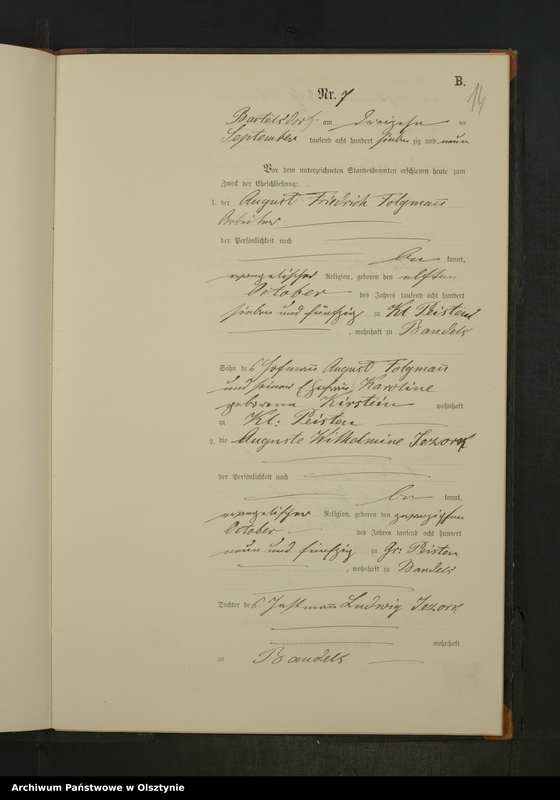 B.
14
Nr. 7
Bartelsdorf am dreizehn ten
September tausend acht hundert sieben zig und neun
Vor dem unterzeichneten Standesbeamten erschienen heute zum
Zweck der Eheschließung:
1. der August Friedrich Folgmann
Arbeiter
der Persönlichkeit nach
be kannt,
evangelischer Religion, geboren den elften
October des Jahres tausend acht hundert
sieben und fünfzig zu Kl. Peisten
, wohnhaft zu Bandels
Sohn des Hofmann August Folgmann
und seiner Ehefrau Karoline
geborene Kirstein wohnhaft
zu Kl: Peisten
2. die Auguste Wilhelmine Jezork
der Persönlichkeit nach
be kannt,
evangelischer Religion, geboren den zwanzigsten
October des Jahres tausend acht hundert
neun und fünfzig zu Gr: Peisten
, wohnhaft zu Bandels
Tochter des Instmann Ludwig Jezork
wohnhaft
zu Bandels
Archiwum Państwowe w Olsztynie